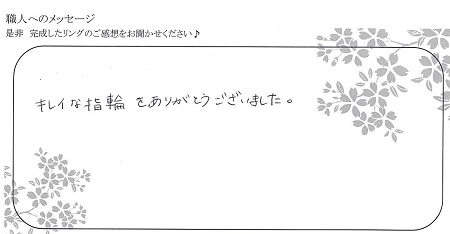 職人へのメッセージ
是非 完成したリングのご感想をお聞かせください♪
キレイな指輪をありがとうございました。